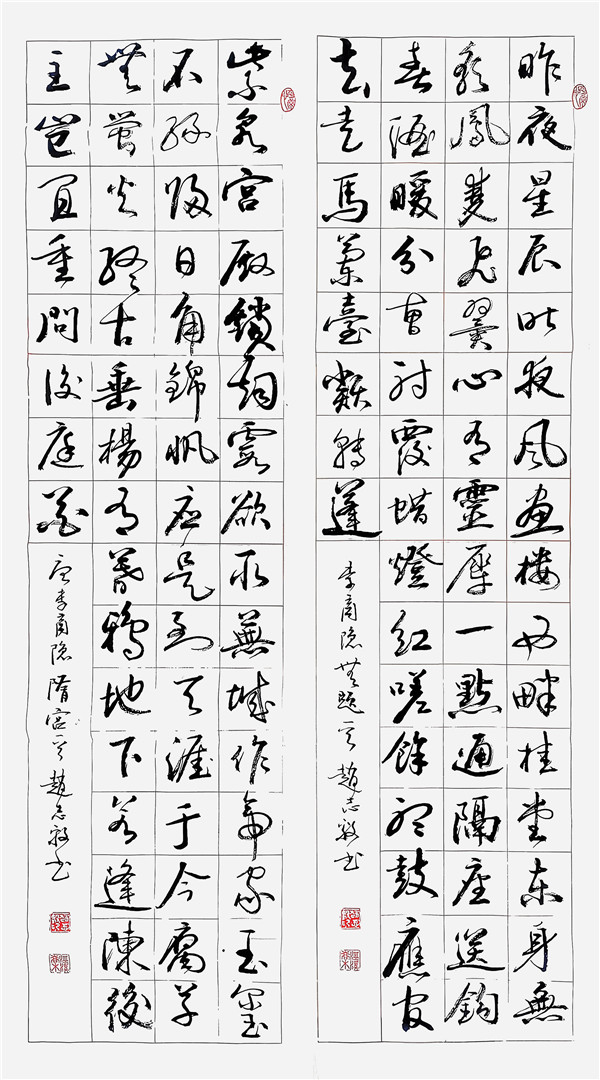 昨夜星辰昨夜风画楼西畔桂堂东身無
彩鳳雙飛翼心有靈犀一點通隔座送鈎
春酒暖分曹射覆蜡燈紅嗟餘聽鼓應官
去走馬蘭臺類轉蓬
李商隐無題一首 趙志书
紫泉宮殿鎖烟霞欲取蕪城作帝家玉璽
不緣歸日角錦帆應是到天涯于今腐草
無螢火終古垂楊有暮鴉地下若逢陳後
主豈宜重問後庭花
唐李商隐隋宫一首 趙志书